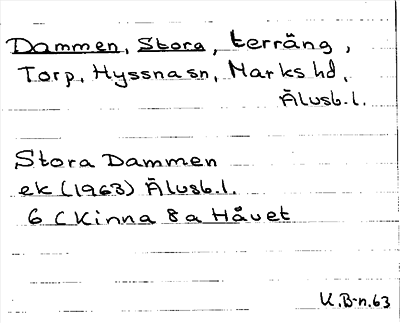 Dammen, Stora, terräng,
Torp, Hyssnasn, Marks hd,
Älvsb. l.
Stora Dammen
ek (1963) Älvsb. l.
6 C Kinna 8 a Håvet
K. B-n. 63